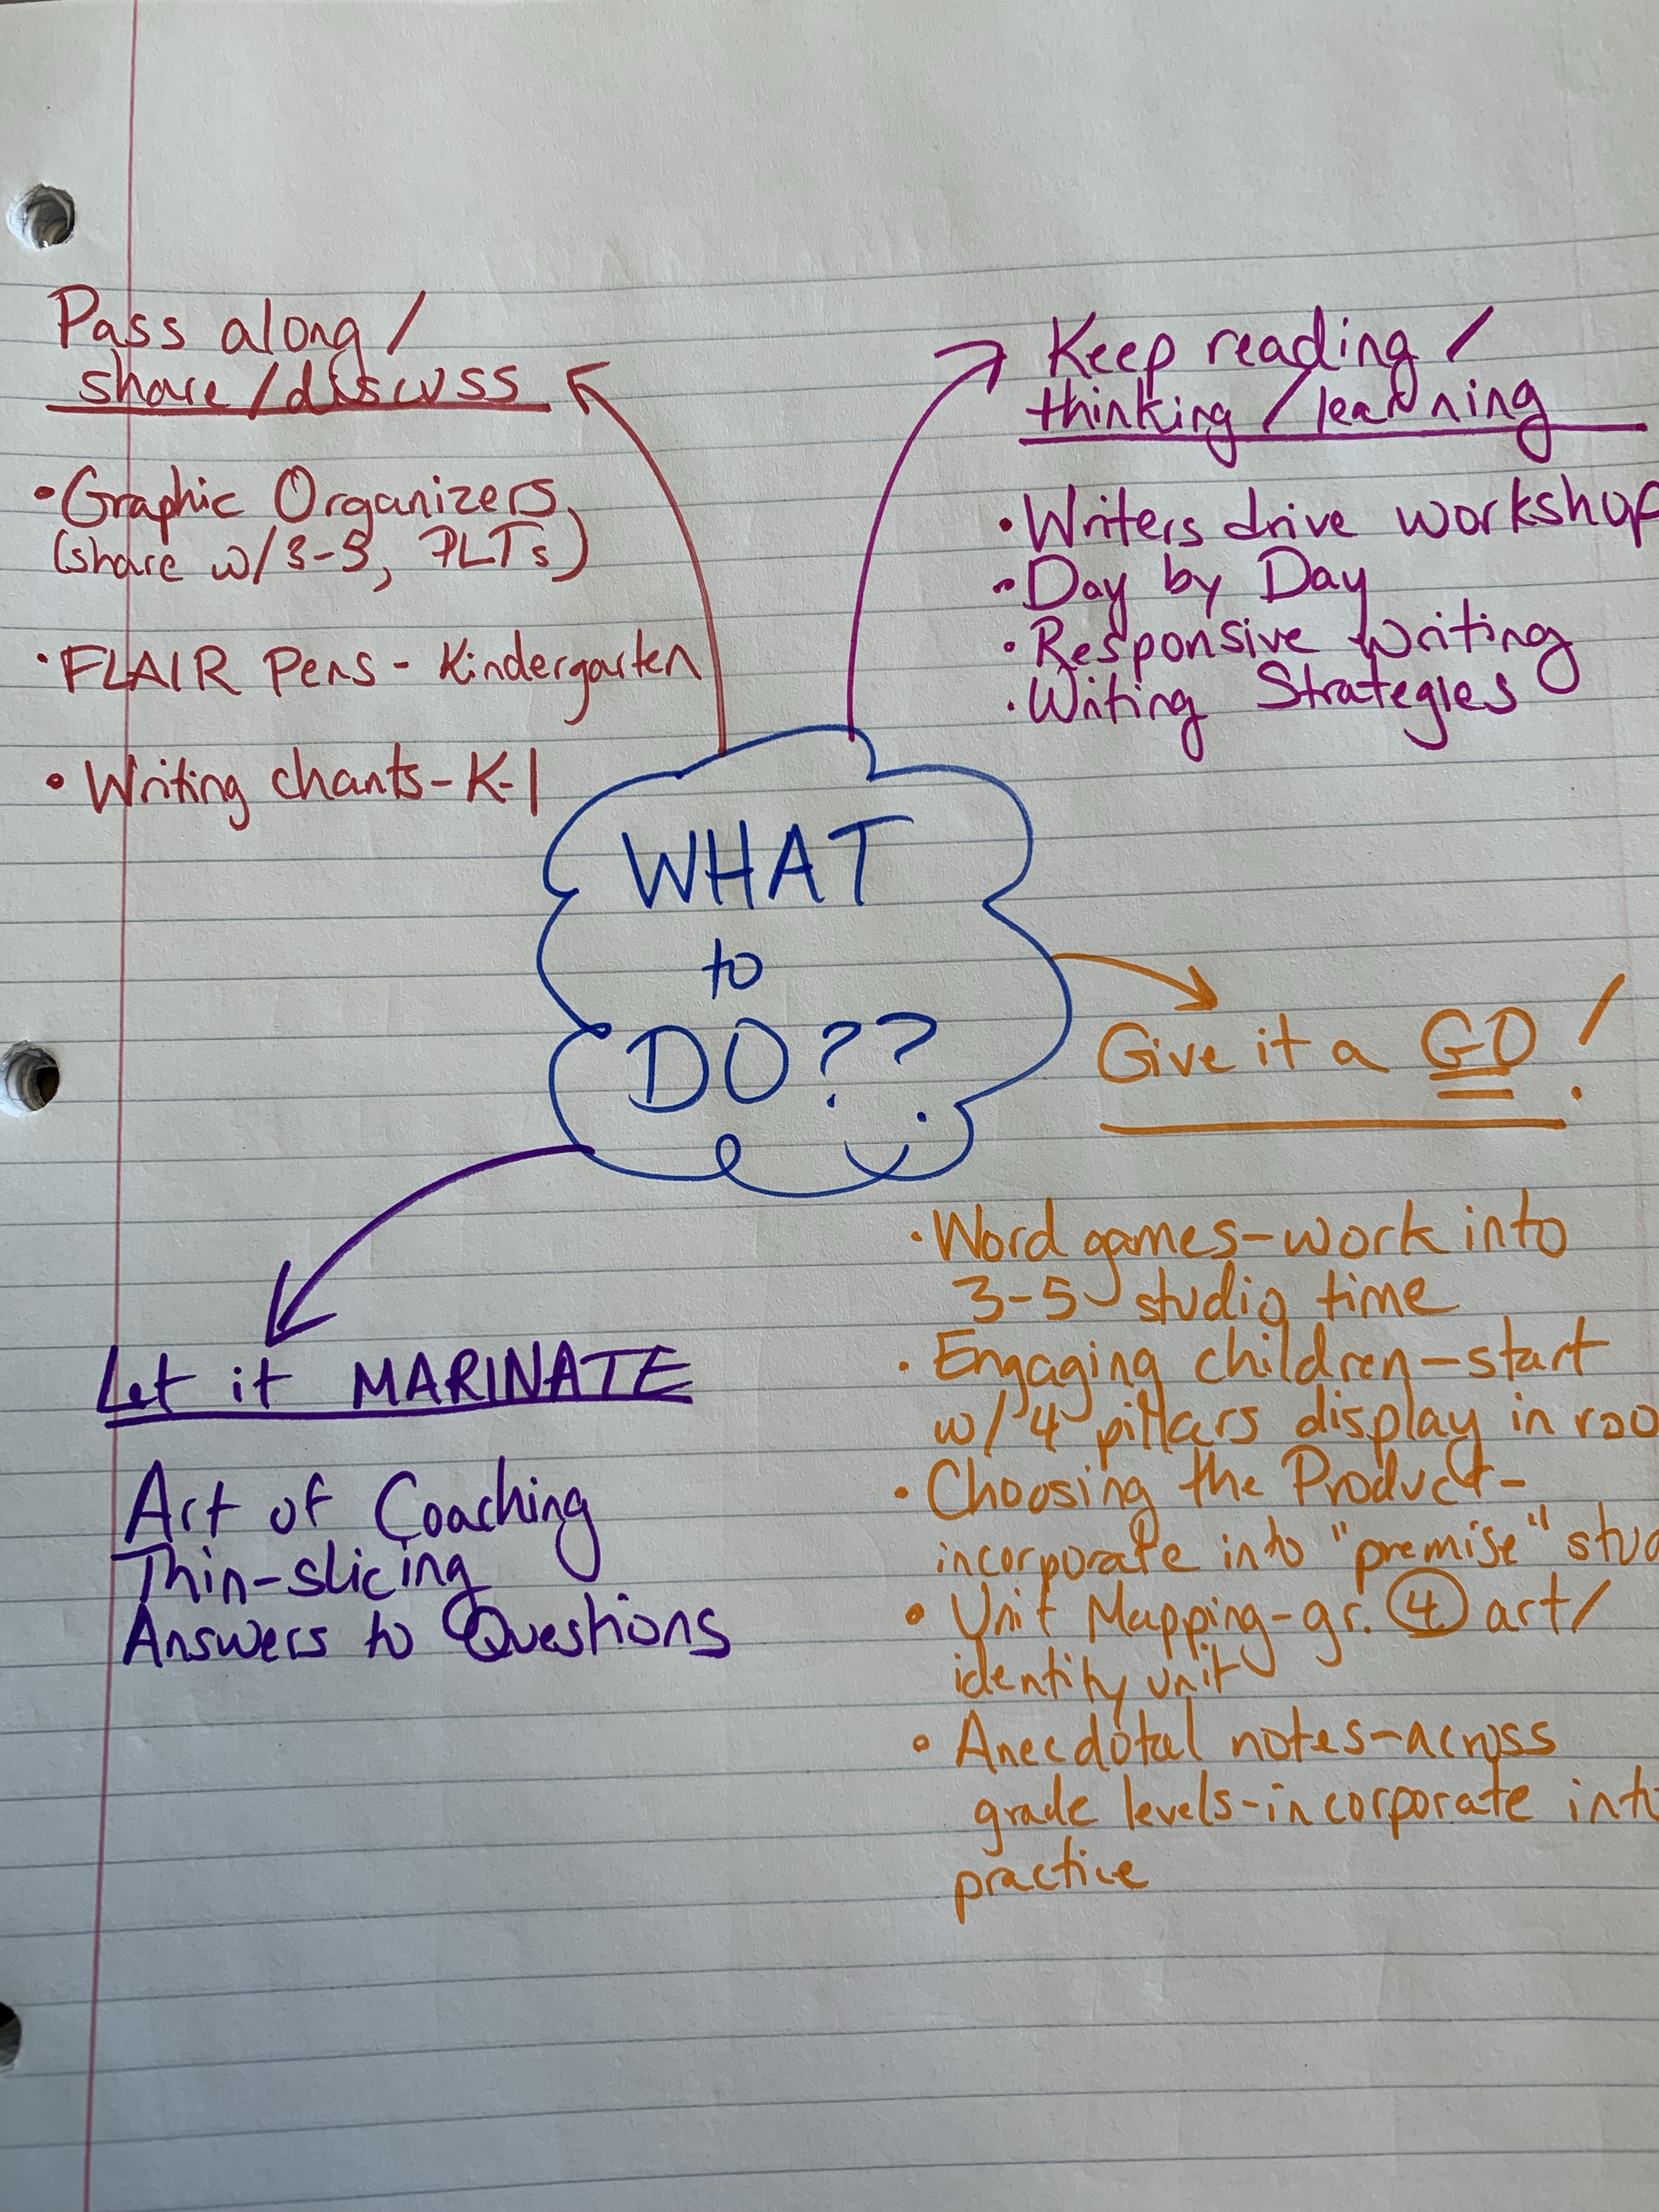 Pass along /
share / discuss
• Graphic Organizers
(share w/ 3-5, PLTs)
• FLAIR Pens - Kindergarten
• Writing chants - K-1
Keep reading /
thinking / learning
• Writers drive workshop
• Day by Day
• Responsive Writing
• Writing Strategies
WHAT
to
DO??
Give it a GO!
• Word games - work into
3-5 studio time
• Engaging children - start
w/ 4 pillars display in roo
• Choosing the Product -
incorporate into "premise" stud
• Unit Mapping - gr. 4 art/
identity unit
• Anecdotal notes - across
grade levels - incorporate into
practice
Let it MARINATE
Art of Coaching
Thin-slicing
Answers to Questions